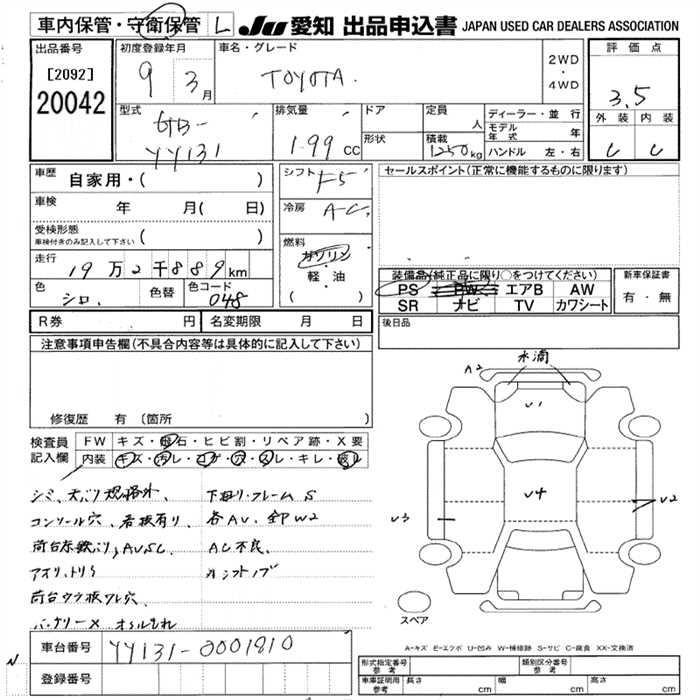 車内保管・守衛保管 L JU 愛知 出品申込書 JAPAN USED CAR DEALERS ASSOCIATION
出品番号
[2092]
20042
初度登録年月
9 3月
車名・グレード
TOYOTA
2WD
・
4WD
評価点
3.5
外装 内装
C C
型式
GB-
YY131
排気量
1.99 cc
ドア
形状
定員 人
積載 1250 kg
ディーラー・並行
モデル年式 年
ハンドル 左・右
車歴
自家用・( )
車検 年 月( 日)
受検形態
車検付きのみ記入して下さい ( )
走行
19万2千889km
色
シロ
色替
色コード
048
シフト F5
冷房 A-C
燃料
ガソリン
・
軽・油
( )
セールスポイント(正常に機能するものに限ります)
装備品(純正品に限り○をつけてください)
PS PW エアB AW
SR ナビ TV カワシート
新車保証書
有・無
後日品
R券 円 名変期限 月 日
注意事項申告欄(不具合内容等は具体的に記入して下さい)
修復歴 有(箇所 )
検査員
記入欄
FW キズ・飛石・ヒビ割・リペア跡・X要
内装 キズ・汚レ・コゲ・穴・スレ・キレ・破レ
シミ、
下廻り・フレームS
コンソール穴、看板有り、
各AV、
W2
AVSC
AC不良
シフトノブ
水滴
A2
V1
V2
V3
V4
スペア
A-キズ E-エクボ U-凹み W-補修跡 S-サビ C-腐食 XX-交換済
車台番号 YY131-0001810
登録番号
形式指定番号 参考
類別区分番号 参考
車庫証明用 参考 長さ cm 幅 cm 高さ cm